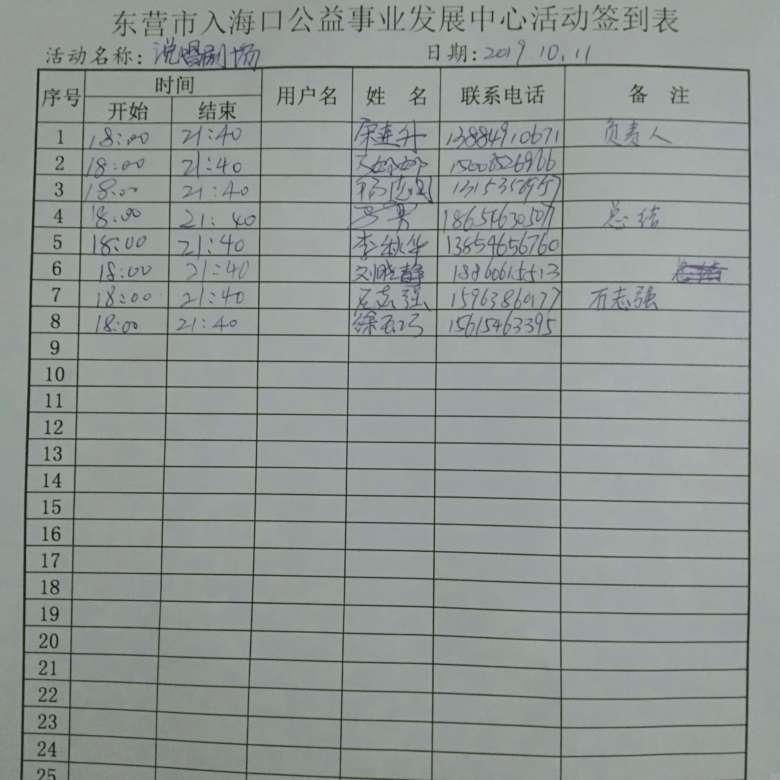 东营市入海口公益事业发展中心活动签到表
活动名称：说唱剧场 日期：2019 10.11
序号 时间 用户名 姓 名 联系电话 备 注
开始 结束
1 18:00 21:40 13884910671 负责人
2 18:00 21:40
3 18:00 21:40
4 18:00 21:40 18654630507 总结
5 18:00 21:40 李秋华 13854656760
6 18:00 21:40 刘晓静
7 18:00 21:40 石志强 15963860177 石志强
8 18:00 21:40 15615463395
9
10
11
12
13
14
15
16
17
18
19
20
21
22
23
24
25